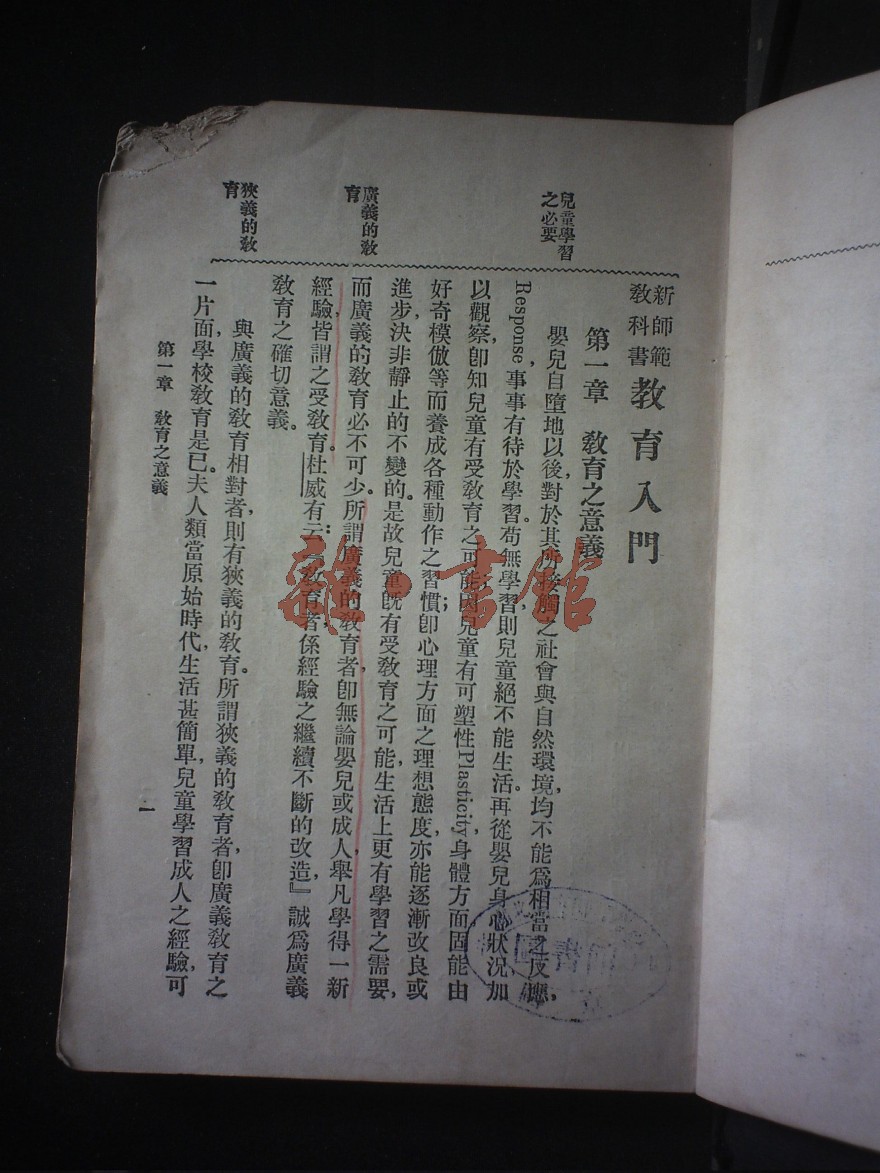 新師範
教科書
教育入門
第一章　教育之意義
兒童學習
之必要
嬰兒自墮地以後，對於其所接觸之社會與自然環境，均不能爲相當之反應，
Response，事事有待於學習。苟無學習，則兒童絕不能生活。再從嬰兒身心狀况加
以觀察，卽知兒童有受敎育之可能；因兒童有可塑性Plasticity，身體方面固能由
好奇模倣等而養成各種動作之習慣；卽心理方面之理想態度，亦能逐漸改良或
進步，決非靜止的不變的。是故兒童旣有受敎育之可能，生活上更有學習之需要，
廣義的敎
育
而廣義的敎育必不可少。所謂廣義的敎育者，卽無論嬰兒或成人，舉凡學得一新
經驗，皆謂之受敎育。杜威有云：『敎育者，係經驗之繼續不斷的改造，』誠爲廣義
敎育之確切意義。
狹義的敎
育
與廣義的敎育相對者，則有狹義的敎育。所謂狹義的敎育者，卽廣義敎育之
一片面，學校敎育是已。夫人類當原始時代，生活甚簡單，兒童學習成人之經驗，可
第一章　敎育之意義
一
雜·書館